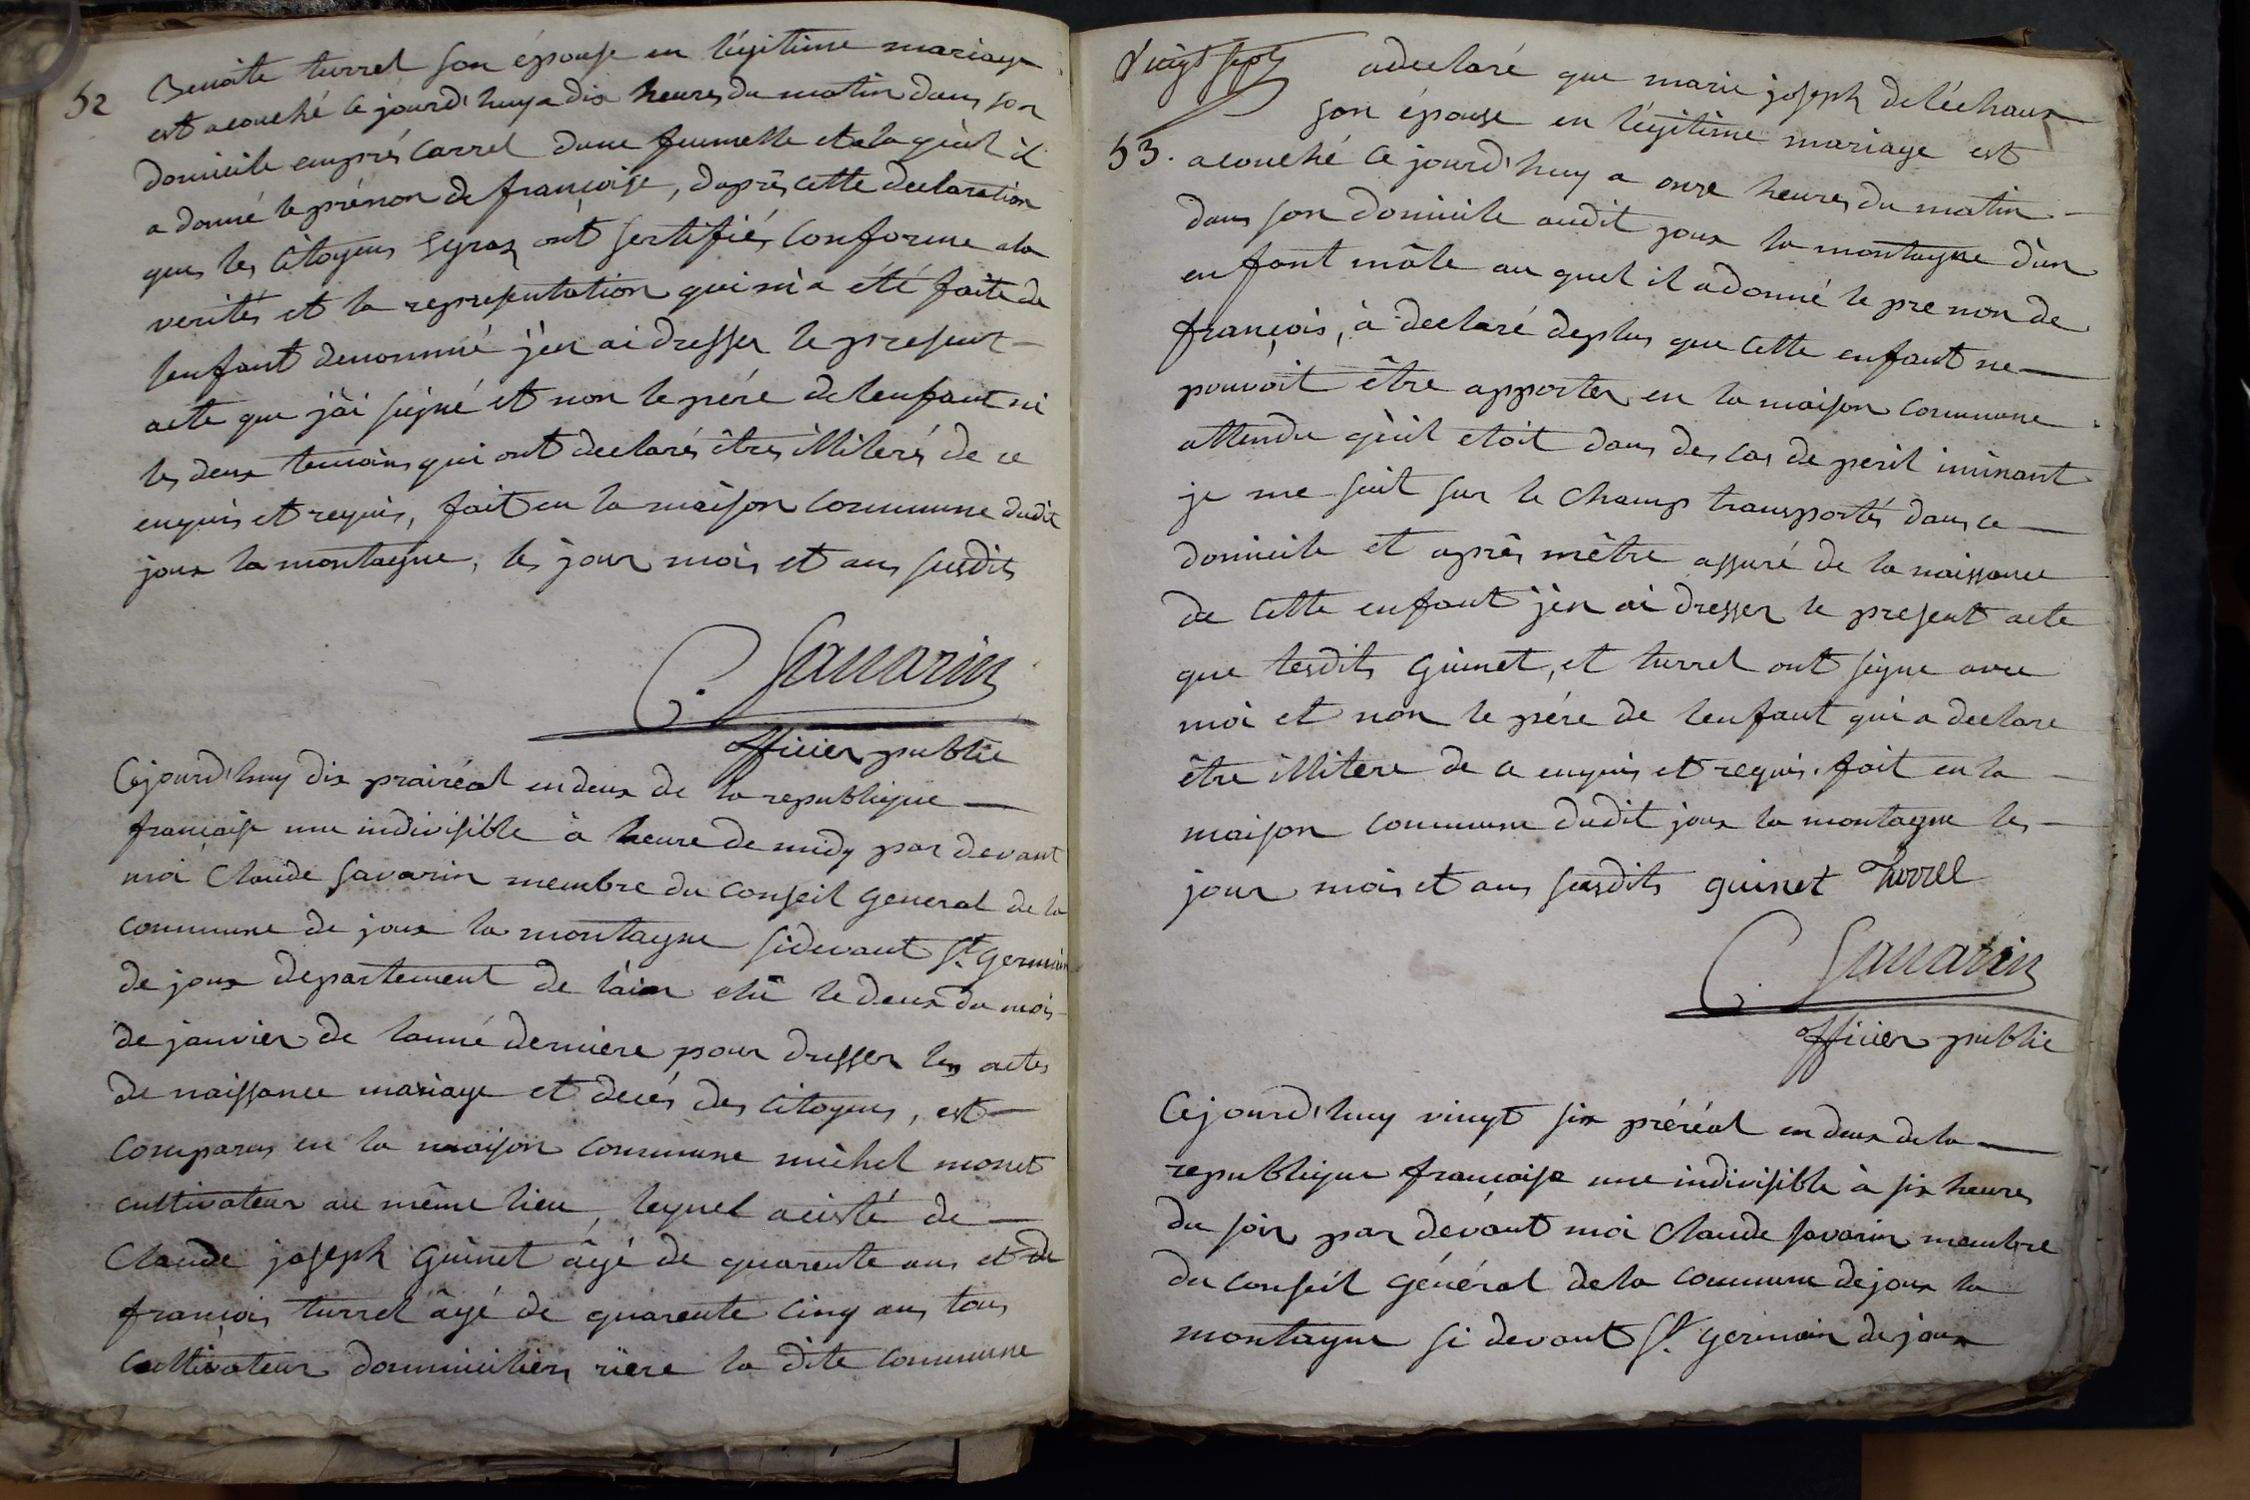 52
Benoite turrel son épouse en légitime mariage
est acouché ce jourd'huy a dix heures du matin dans son
domicile emprés Carrel dune fummelle et a la quèl il
a donné le prénon de françoise, daprês cette declaration
que les Citoyens Seyraz ont sertifiés Conforme a la
verités et la representation qui m'a été faite de
lenfant denommé j'en ai dresser le present —
acte que j'ài signé et non le pére de lenfant ni
les deux temoins qui ont declarés êtres illiterés de ce
enquis et requis, fait en la maison Commune dudit
joux la montagne, les jour mois et ans susdits
C. Savarin
officier public
Cejourd'huy dix prairéal en deux de la republique —
françaisse une indivisible à heure de midy par devant
moi Claude Savarin membre du Conseil General de la
Commune de joux la montagne sidevant St. Germain
de joux departement de làin elû le deux du mois
de janvier de lanné derniere pour dresser les actes
de naissance mariage et decés des Citoyens, est —
Comparus en la maison Commune michel monet
cultivateur au même lieu, lequel acisté de —
Claude joseph Guinet âgé de quarente ans et de
françois turrel âgé de quarente Cinq ans tous
Cultivateur dommiciliers riere la dite Commune
Vingt sept
53.
a declaré que marie joseph deléchaux
son épouse en légitime mariage est
acouché ce jourd'huy a onze heures du matin —
dans son domicile audit joux la montagne d'un
enfant mâle au quel il a donné le pre non de
françois, à declaré deplus que cette enfant ne —
pouvoit être apporter en la maison Commune
attendu qèùil etoit dans des Cas de peril iminant
je me suit sur le Champ transportés dans ce —
domicile et aprês mêtre assuré de la naissance
de cette enfant j'en ai dresser le present acte
que lesdits Guinet, et turrel ont signe avec
moi et non le pére de lenfant qui a declare
être illitere de ce enquis et requis. fait en la —
maison Commune dudit joux la montagne les —
jour mois et ans susdits guinet Turrel
C. Savarin
officier public
Cejourd'huy vingt six préréal en deux de la —
republique françaisse une indivisible à six heures
du soir par devant moi Claude Savarin membre
du Conseil Général de la Commune de joux la
montagne si devant St. Germain de joux